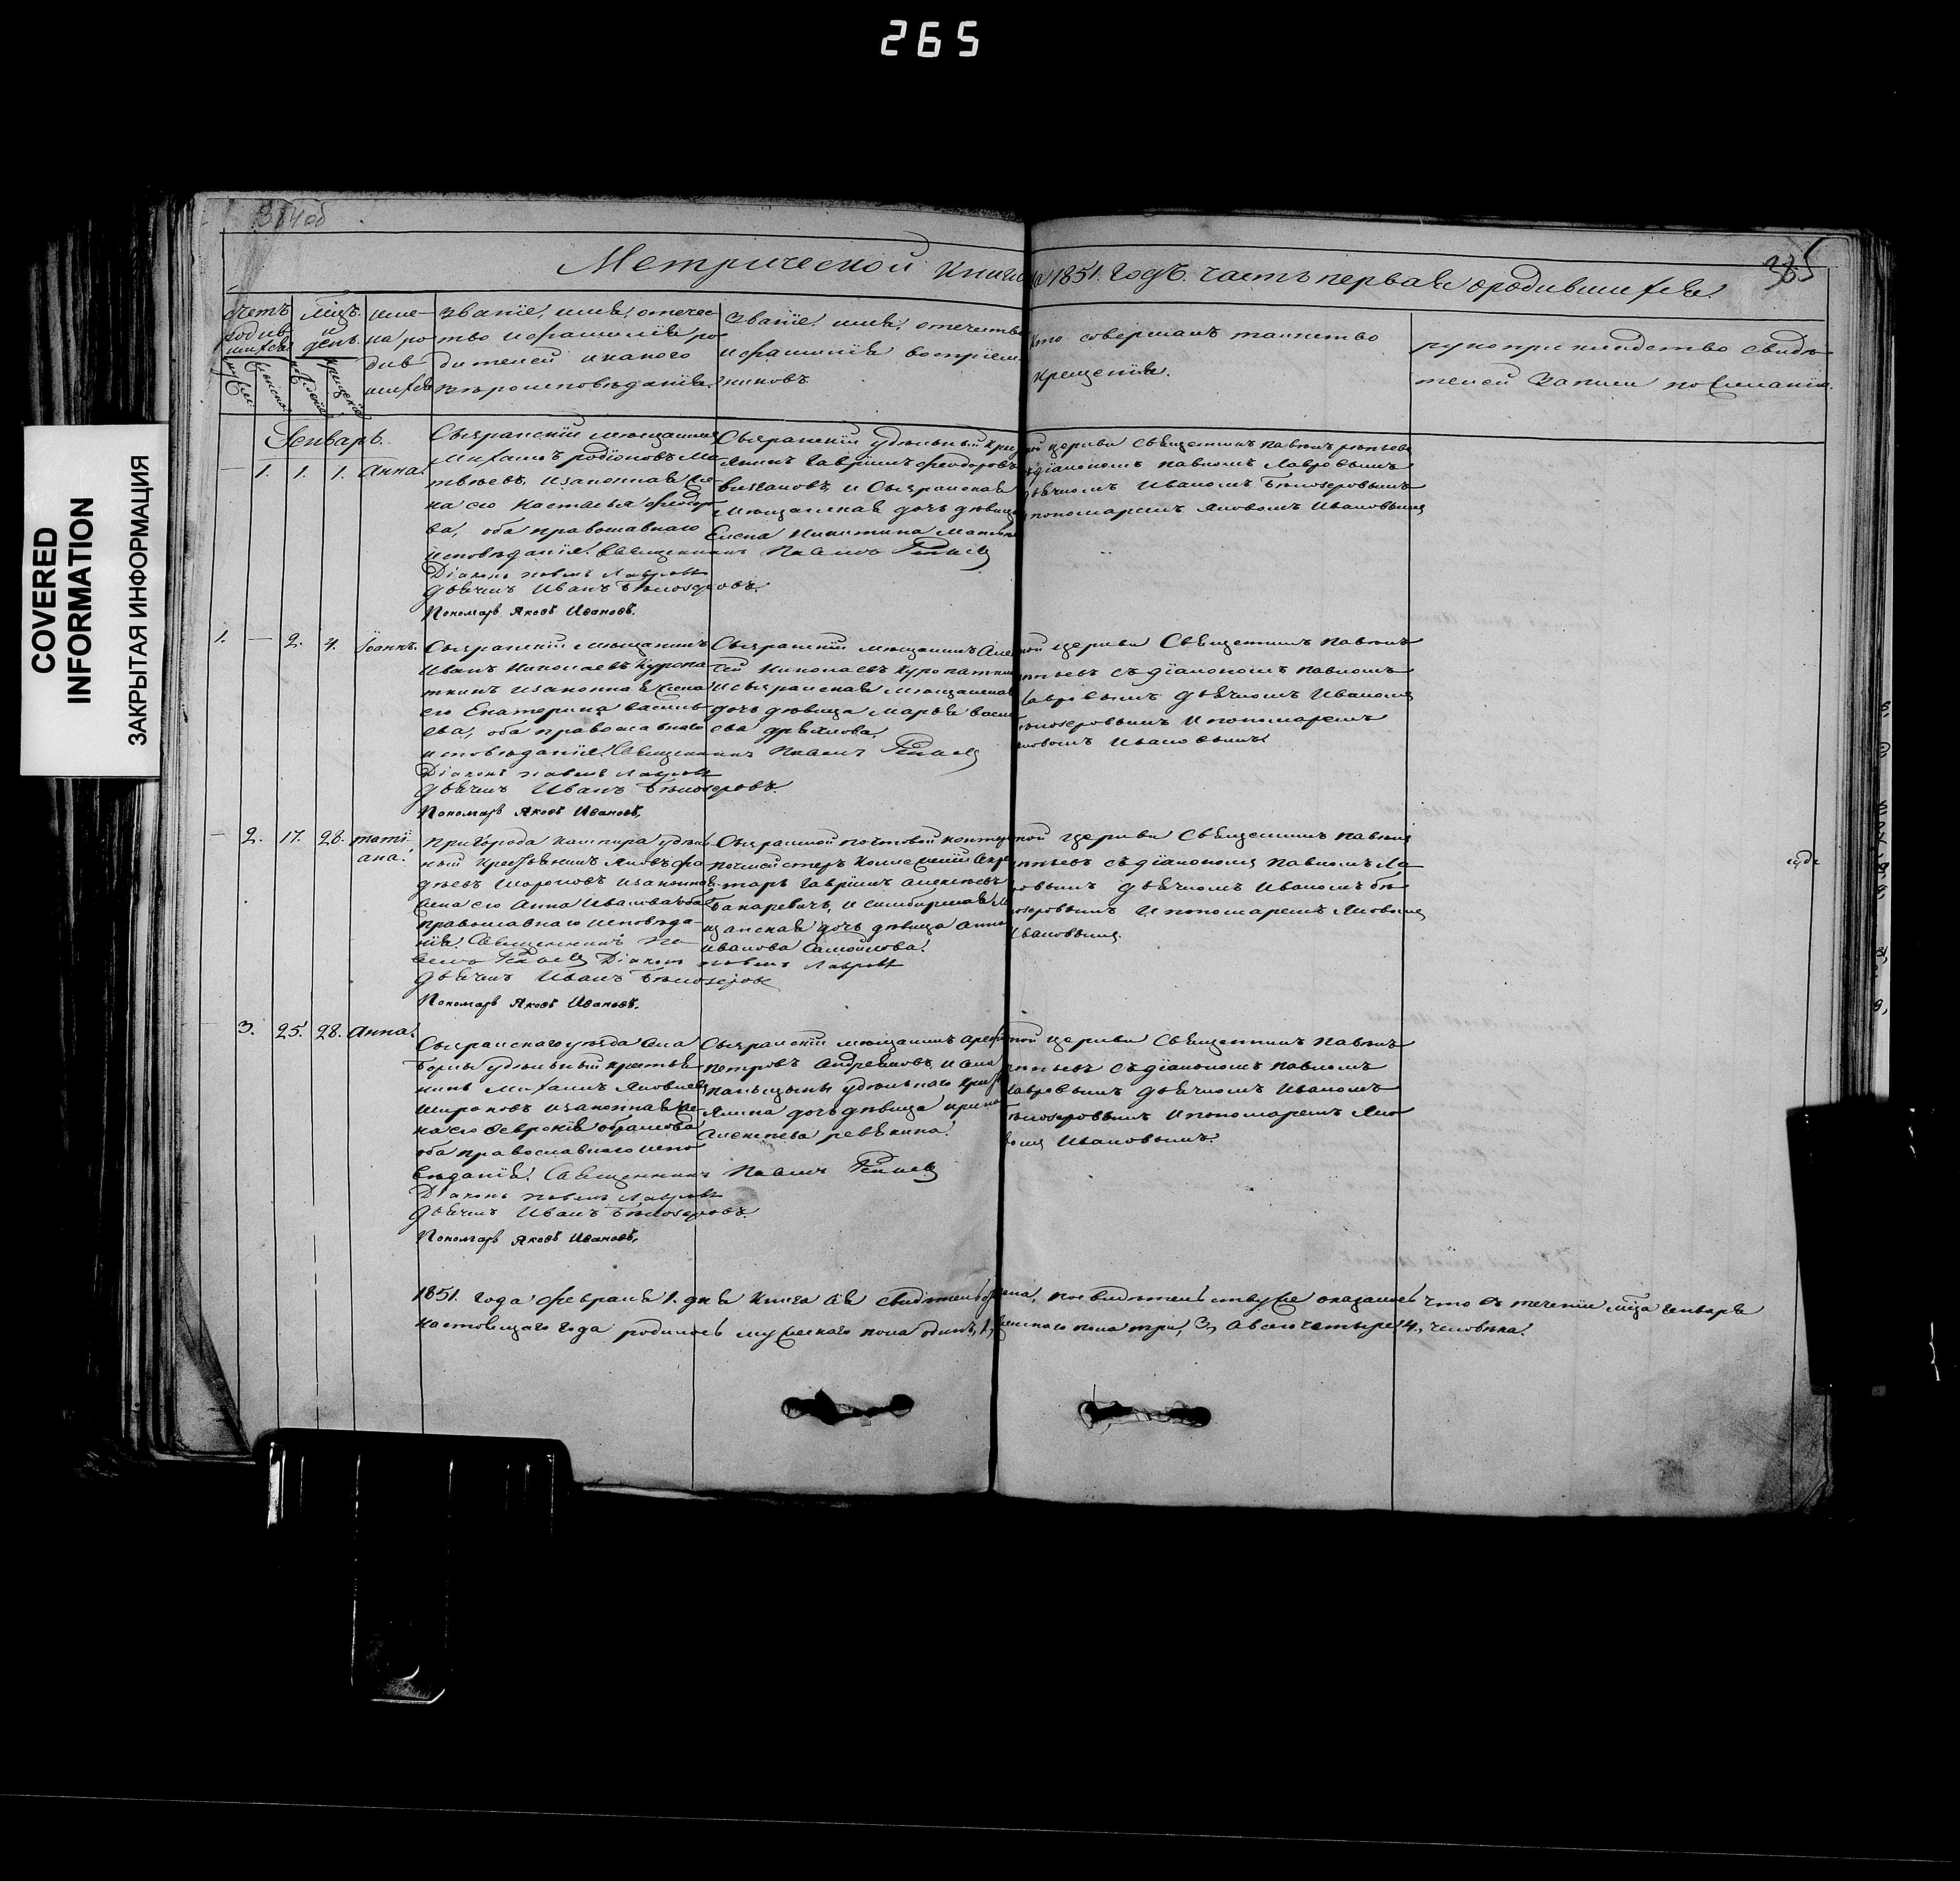 265
COVERED
INFORMATION
ЗАКРЫТАЯ ИНФОРМАЦИЯ
385
Метрической книги на 1851. годъ. часть первая о родившихся.
Счетъ
родив
шихся
мужеска
женска
Мцъ.
и
день.
рожденія
крещенія
име
на ро
див
шихся
Званіе, имя, отечес
тво и фамилія ро
дителей и какого
вѣроисповѣданія.
Званіе, имя, отечество
и фамилія воспріем
никовъ
Кто совершалъ таинство
крещенія.
рукоприкладство свидѣ
телей записи по желанію.
Январь.
1. 1. 1. Анна.
Сызранскій мещанинъ
Михаилъ родіоновъ Ма
твѣевъ, и законная же
на его Настасья Федоро
ва, оба православнаго
исповѣданія. Священникъ Павелъ
Діаконъ павелъ Лавровъ
Дьячикъ Иванъ Бѣлозеровъ.
Пономарь Яковъ Ивановъ.
Сызранскій удѣльный крес
янинъ Гавріилъ Феодоровъ
и Сызранская
мещанская дочь дѣвица
Елена Никитина
ной церкви Священникъ Павелъ
съ діакономъ павломъ Лавровымъ
дьячкомъ Иваномъ Бѣлозеровымъ
и пономаремъ Яковомъ Ивановымъ
1. — 2. 4. Іоаннъ.
Сызранскій мещанинъ
Иванъ Николаевъ Куропа
ткинъ и законная жена
его Екатерина Василь
ева, оба православнаго
исповѣданія. Священникъ Павелъ
Діаконъ павелъ Лавровъ
Дьячикъ Иванъ Бѣлозеровъ.
Пономарь Яковъ Ивановъ.
Сызранскій мещанинъ Алек
сей Николаевъ Куропаткинъ
и сызранская мещанская
дочь дѣвица Марья Васи
ева
ной церкви Священникъ Павелъ
съ діакономъ павломъ
Лавровымъ дьячкомъ Иваномъ
Бѣлозеровымъ и пономаремъ
Яковомъ Ивановымъ.
2. 17. 28. Татi
ана.
Пригорода Кашпира удѣль
ный крестьянинъ Яковъ Фа
дѣевъ и законная
жена его Анна Иванова оба
православнаго исповѣда
нія. Священникъ Па
велъ Діаконъ павелъ Лавровъ
Дьячикъ Иванъ Бѣлозеровъ
Пономарь Яковъ Ивановъ.
Сызранской почтовой конторы
почмейстеръ Коллежскій секре
тарь Гавріилъ Алексѣевъ
и симбирская ме
щанская дочь дѣвица Анна
Иванова Самойлова.
ной церкви Священникъ Павелъ
съ діакономъ Павломъ Ла
вровымъ дьячкомъ Иваномъ Бѣ
лозеровымъ и пономаремъ Яковомъ
Ивановымъ.
3. 25. 28. Анна.
Сызранскаго уѣзда села
удѣльный крестья
нинъ Михаилъ Яковлевъ
Широковъ и законная же
на его Февронія
оба православнаго испо
вѣданія. Священникъ Павелъ
Діаконъ павелъ Лавровъ
Дьячикъ Иванъ Бѣлозеровъ.
Пономарь Яковъ Ивановъ.
Сызранскій мещанинъ
Петровъ Андреяновъ, и села
удѣльнаго крест
янина дочь дѣвица Ирина
Алексѣева
ной церкви Священникъ Павелъ
съ діакономъ павломъ
Лавровымъ дьячкомъ Иваномъ
Бѣлозеровымъ и пономаремъ Яко
вомъ Ивановымъ.
1851. года Февраля 1. дня книга сія свидѣтельствована, по свидѣтельству же оказалось что въ теченіи мца генваря
настоящаго года родилось мужескаго пола одинъ, 1, женскаго пола три, 3, а всего четыре, 4, человѣка.